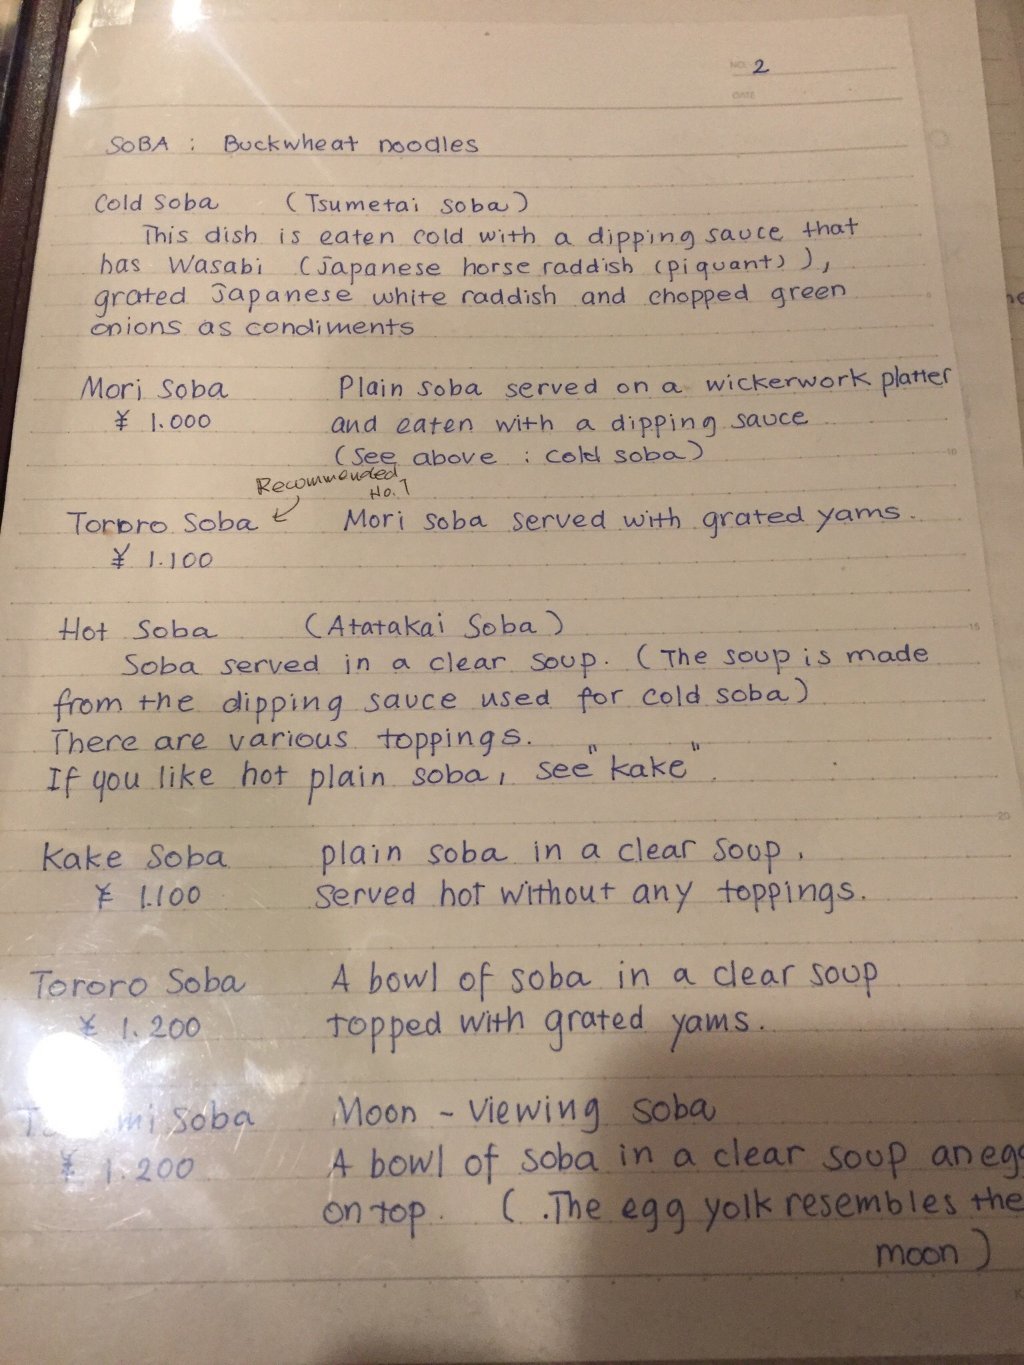 NO. 2
DATE
SOBA : Buckwheat noodles
Cold Soba (Tsumetai soba)
This dish is eaten cold with a dipping sauce that
has Wasabi (Japanese horse raddish (piquant)),
grated Japanese white raddish and chopped green
onions as condiments
Mori Soba Plain soba served on a wickerwork platter
¥ 1.000 and eaten with a dipping sauce
(See above : cold soba)
Recommended
No.1
Tororo Soba Mori soba served with grated yams.
¥ 1.100
Hot Soba (Atatakai Soba)
Soba served in a clear soup. (The soup is made
from the dipping sauce used for cold soba)
There are various toppings.
If you like hot plain soba, see "kake".
Kake Soba plain soba in a clear soup,
¥ 1.100 served hot without any toppings.
Tororo Soba A bowl of soba in a clear soup
¥ 1.200 topped with grated yams.
Soba Moon - Viewing soba
¥ 1.200 A bowl of soba in a clear soup an egg
on top. (.The egg yolk resembles the
moon)